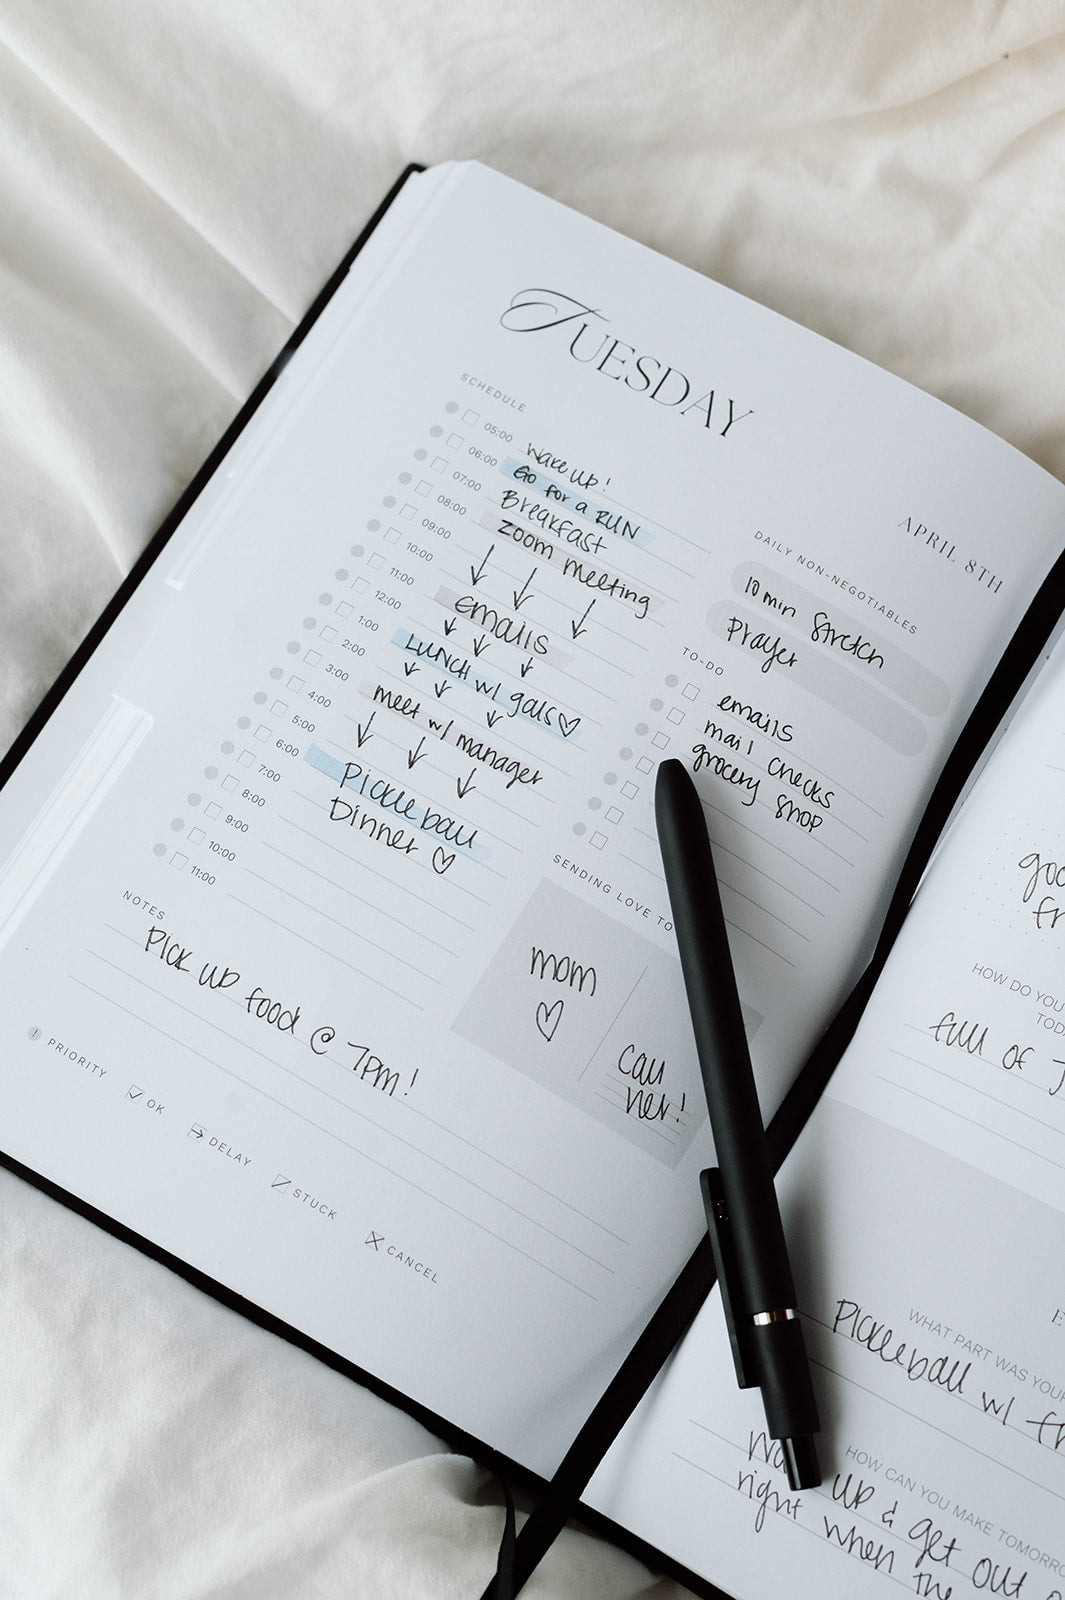 TUESDAY
APRIL 8TH
SCHEDULE
05:00 wake up!
06:00 Go for a RUN
07:00 Breakfast
08:00 zoom meeting
09:00
10:00
11:00 emails
12:00
1:00 LUNCH w/ gals♡
2:00
3:00 meet w/ manager
4:00
5:00
6:00 Pickleball
7:00 Dinner ♡
8:00
9:00
10:00
11:00
DAILY NON-NEGOTIABLES
10 min Stretch
Prayer
TO-DO
emails
mail checks
grocery shop
SENDING LOVE TO
mom
♡
call
her!
NOTES
Pick up food @ 7pm!
! PRIORITY
OK
DELAY
STUCK
CANCEL
HOW DO YOU
full of
WHAT PART WAS YOUR
Pickleball w/
HOW CAN YOU MAKE
up & get out
right when the